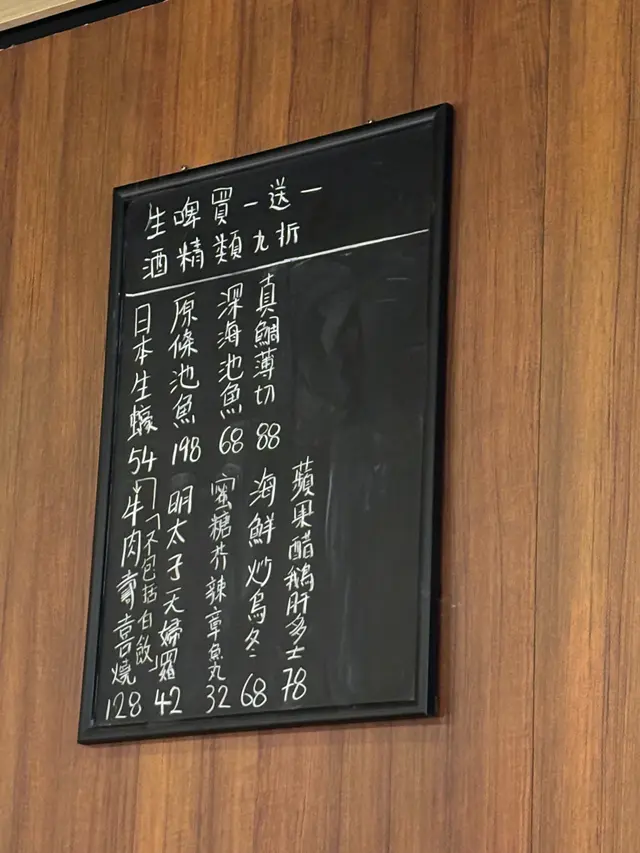 生啤買一送一
酒精類九折
真鯛薄切 88
深海池魚 68
原條池魚 198
日本生蠔 54
蘋果醋鵝肝多士 78
海鮮炒烏冬 68
蜜糖芥辣章魚丸 32
明太子天婦羅 42
「不包括白飯」
牛肉壽喜燒 128